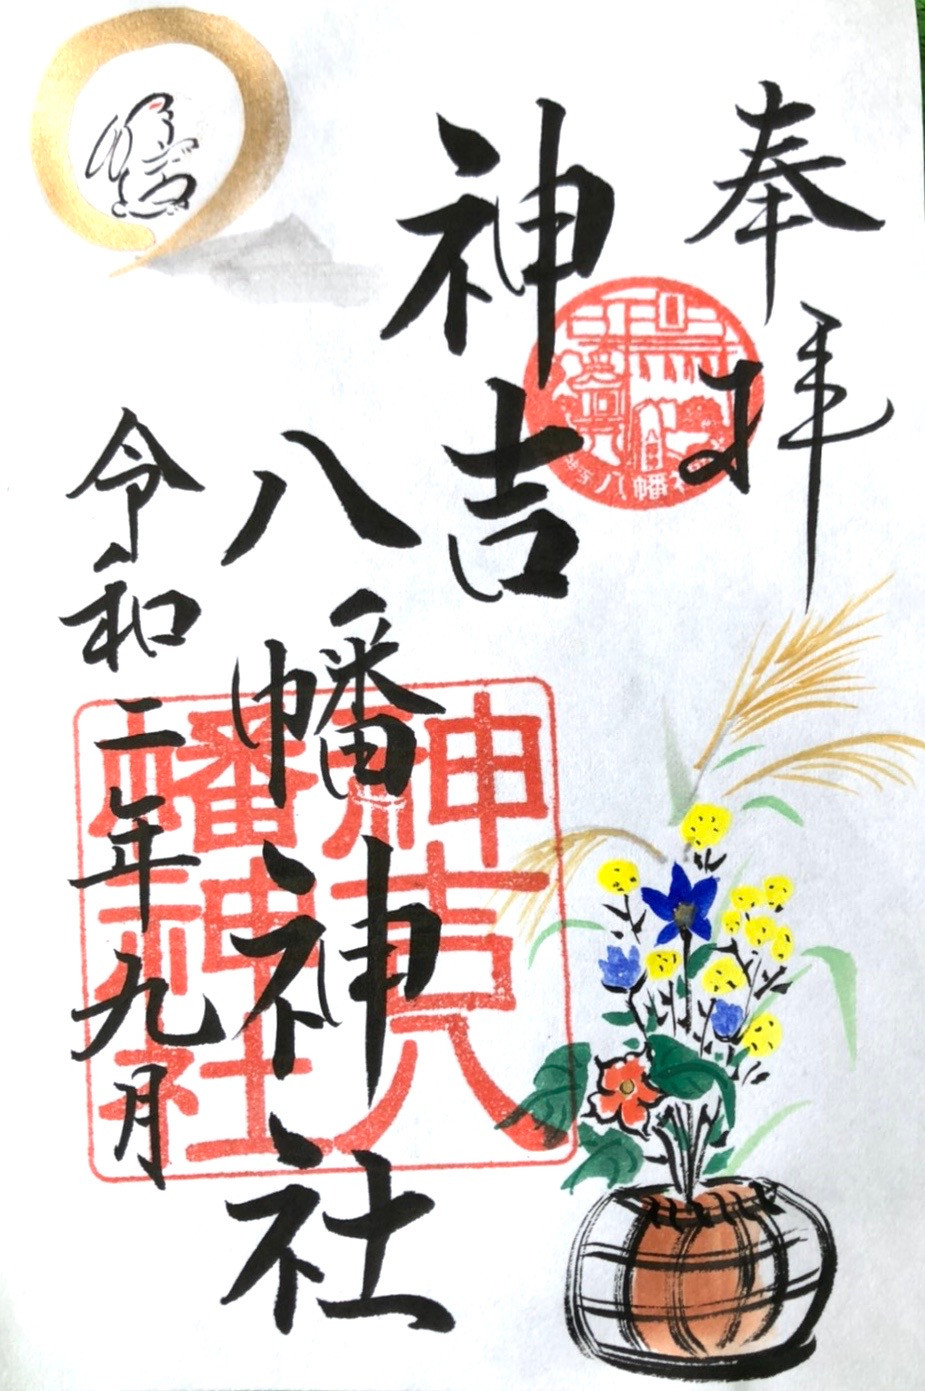 奉拝
神吉
八幡神社
令和二年九月
八幡神
神吉八
幡神社